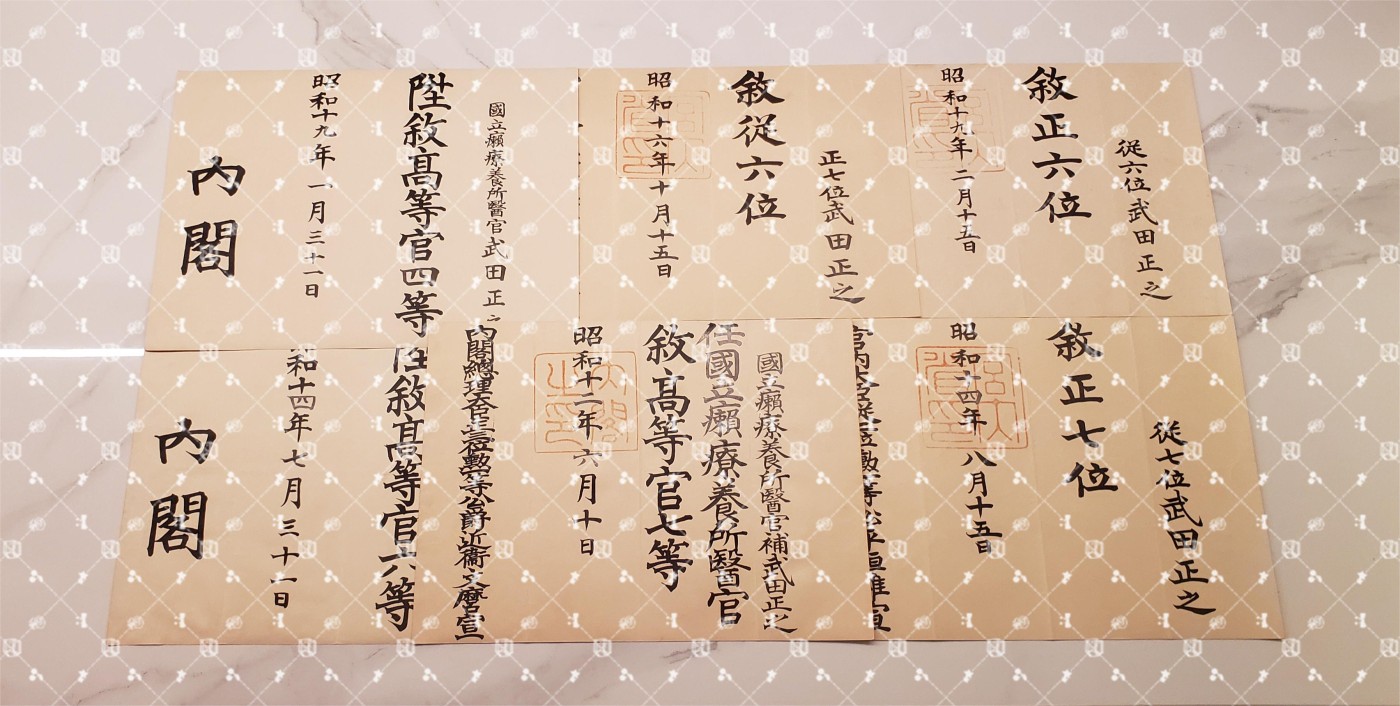 從六位武田正之
敘正六位
昭和十九年二月十五日
正七位武田正之
敘從六位
昭和十六年十月十五日
國立癩療養所醫官武田正之
陞敘高等官四等
昭和十九年一月三十一日
內閣
從七位武田正之
敘正七位
昭和十四年八月十五日
國立癩療養所醫官補武田正之
任國立癩療養所醫官
敘高等官七等
昭和十二年六月十日
內閣總理大臣從二位勳三等公爵近衞文麿宣
陞敘高等官六等
和十四年七月三十一日
內閣